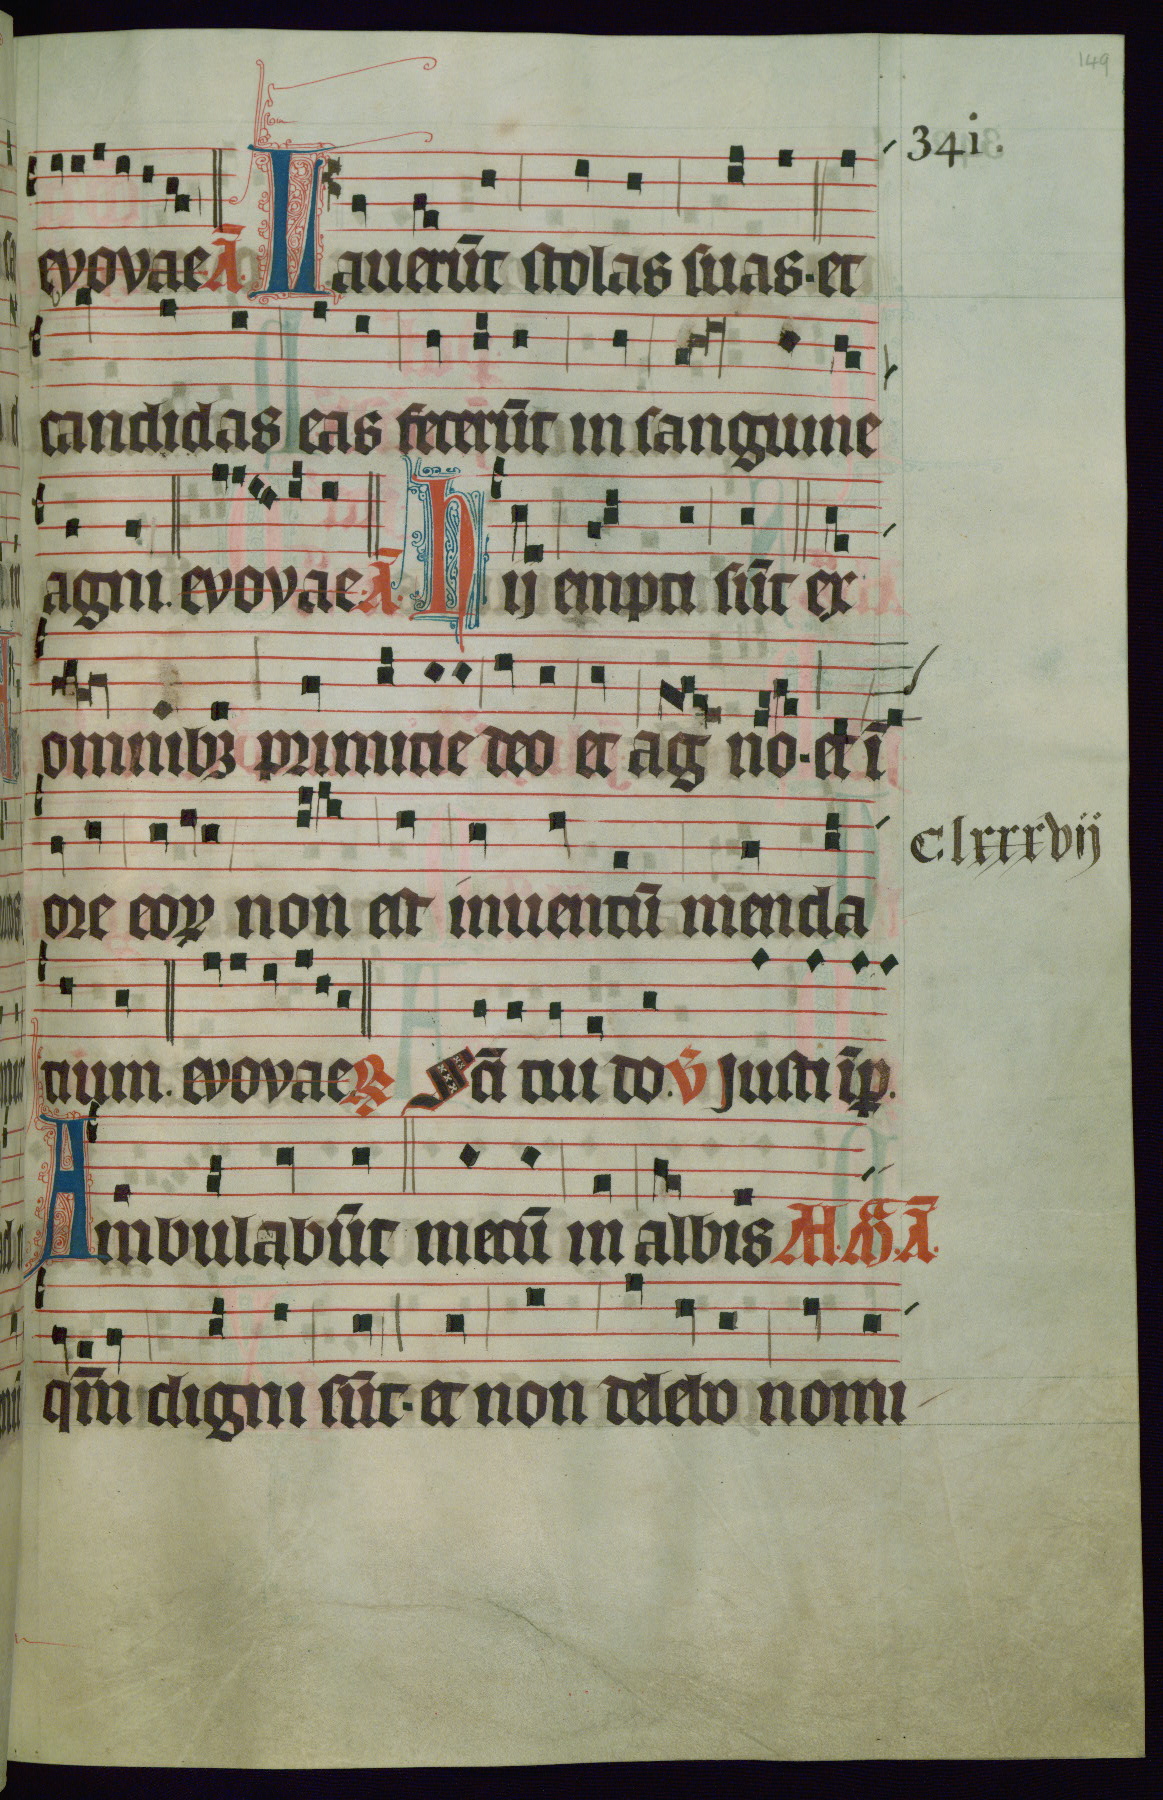 149
34i.
evovae Ā. Lauerūt stolas suas. et
candidas eas fecerūt in sanguine
agni. evovae. Ā. hij empti sūt ex
omnibꝫ primitie deo et agno. et ī
ore eoꝝ non est inuentū menda
Clxxxvij
tium. evovae ℟ Sc̄i tui do. v̄ Justi īp̱.
Ambulabūt mecū in albis
qm̄ digni sūt. et non delebo nomi